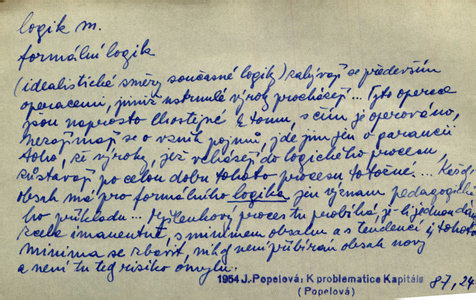 logik m.
formální logik
(idealistické směry současné logiky) zabývají se především
operacemi, jimiž ustrnulé výroky procházejí... Tyto operace
jsou naprosto lhostejné k tomu, s čím je operováno,
nezajímají se o vznik pojmů, jde jim jen o garancii
toho, že výroky, jež vcházejí do logického procesu,
zůstávají po celou dobu tohoto procesu totožné... Každý
obsah má pro formálního logika jen význam pedagogické-
ho příkladu... Myšlenkový proces tu probíhá, je-li jednou dán
zcela imanentně, s minimem obsahu a s tendencí i tohoto
minima se zbavit, nikdy není přibírán obsah nový
a není tu tedy risiko omylu.
1954 J. Popelová: K problematice Kapitálu
(Popelová)
87, 24